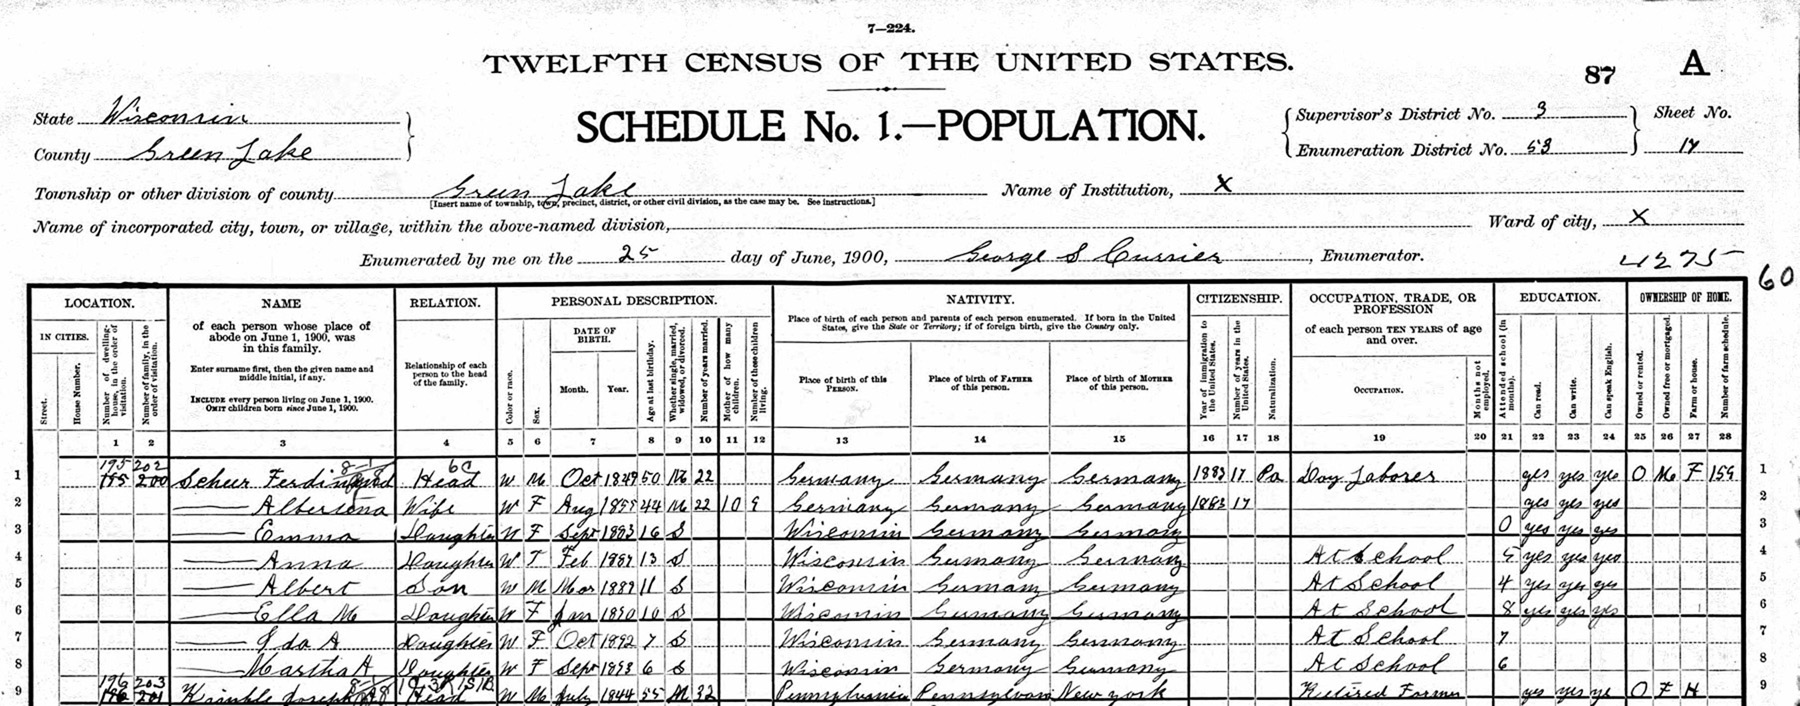 7—224.
TWELFTH CENSUS OF THE UNITED STATES.
87 A
State Wisconsin
SCHEDULE No. 1.—POPULATION.
Supervisor's District No. 3 Sheet No.
County Green Lake
Enumeration District No. 53 17
Township or other division of county Green Lake Name of Institution, X
[Insert name of township, town, precinct, district, or other civil division, as the case may be. See instructions.]
Name of incorporated city, town, or village, within the above-named division, Ward of city, X
Enumerated by me on the 25 day of June, 1900, George S Currier, Enumerator.
4275
60
LOCATION. NAME RELATION. PERSONAL DESCRIPTION. NATIVITY. CITIZENSHIP. OCCUPATION, TRADE, OR PROFESSION EDUCATION. OWNERSHIP OF HOME.
IN CITIES.
Street.
House Number.
Number of dwelling-house, in the order of visitation.
Number of family, in the order of visitation.
of each person whose place of abode on June 1, 1900, was in this family.
Enter surname first, then the given name and middle initial, if any.
INCLUDE every person living on June 1, 1900.
OMIT children born since June 1, 1900.
Relationship of each person to the head of the family.
Color or race.
Sex.
DATE OF BIRTH.
Month. Year.
Age at last birthday.
Whether single, married, widowed, or divorced.
Number of years married.
Mother of how many children.
Number of these children living.
Place of birth of each person and parents of each person enumerated. If born in the United States, give the State or Territory; if of foreign birth, give the Country only.
Place of birth of this PERSON.
Place of birth of FATHER of this person.
Place of birth of MOTHER of this person.
Year of immigration to the United States.
Number of years in the United States.
Naturalization.
of each person TEN YEARS of age and over.
OCCUPATION.
Months not employed.
Attended school (in months).
Can read.
Can write.
Can speak English.
Owned or rented.
Owned free or mortgaged.
Farm or house.
Number of farm schedule.
1 2 3 4 5 6 7 8 9 10 11 12 13 14 15 16 17 18 19 20 21 22 23 24 25 26 27 28
1 195 202 Scheer Ferdinand Head W M Oct 1849 50 M 22 Germany Germany Germany 1883 17 Pa Day Laborer yes yes yes O M F 159 1
2 Albertena Wife W F Aug 44 M 22 10 9 Germany Germany Germany 1883 17 yes yes yes 2
3 Emma Daughter W F Sept 1883 16 S Wisconsin Germany Germany 0 yes yes yes 3
4 Anna Daughter W F Feb 1887 13 S Wisconsin Germany Germany At School 5 yes yes yes 4
5 Albert Son W M Mar 1889 11 S Wisconsin Germany Germany At School 4 yes yes yes 5
6 Ella M Daughter W F Jan 1890 10 S Wisconsin Germany Germany At School 8 yes yes yes 6
7 Ida A Daughter W F Oct 1892 7 S Wisconsin Germany Germany At School 7 7
8 Martha A Daughter W F Sept 1893 6 S Wisconsin Germany Germany At School 6 8
9 196 203 Joseph Head W M July 1844 55 M 32 Pennsylvania Pennsylvania New york Retired Farmer yes yes ye O F H 9